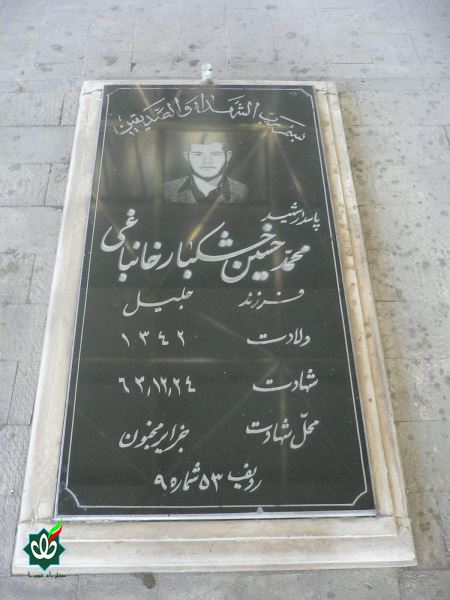 بسم رب الشهداء والصدیقین
پاسدار شهید
محمد حسین خشکبار خانباغی
فرزند جلیل
ولادت ۱۳۴۲
شهادت ۶۳,۱۲,۲۴
محل شهادت جزایر مجنون
ردیف ۵۳ شماره ۹